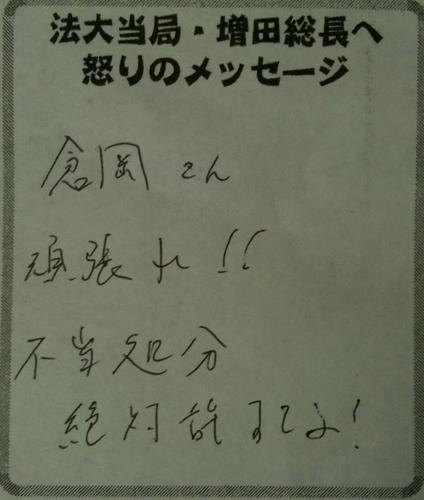 法大当局・増田総長へ
怒りのメッセージ
倉岡さん
頑張れ!!
不当処分
絶対許すな!